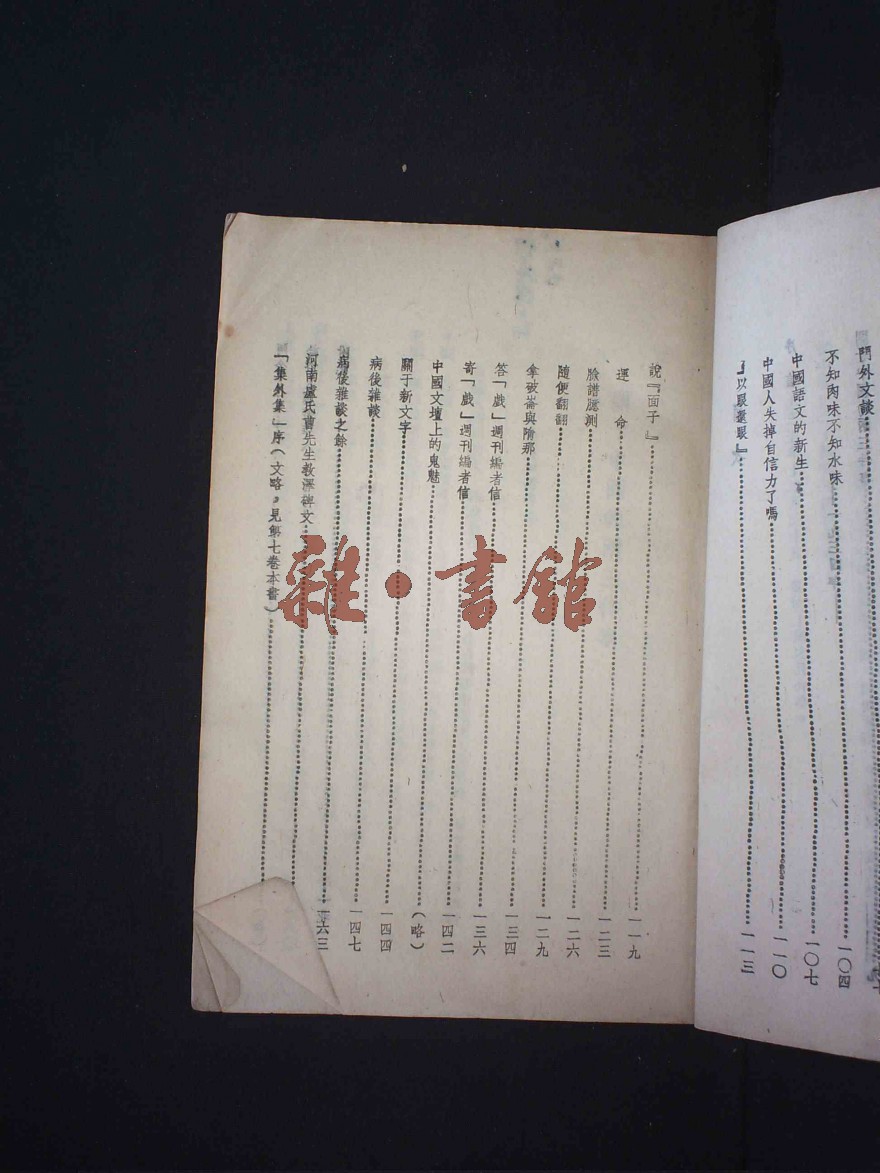 門外文談
不知肉味不知水味……一〇四
中國語文的新生……一〇七
中國人失掉自信力了嗎……一一〇
『以眼還眼』……一一三
說『面子』……一一九
運　命……一二三
臉譜臆測……一二六
隨便翻翻……一二九
拿破崙與隋那……一三四
答「戲」週刊編者信……一三六
寄「戲」週刊編者信……一四二
中國文壇上的鬼魅……（略）
關于新文字……一四四
病後雜談……一四七
病後雜談之餘……一六三
河南盧氏曹先生教澤碑文……
「集外集」序（文略，見第七卷本書）……
雜·書館